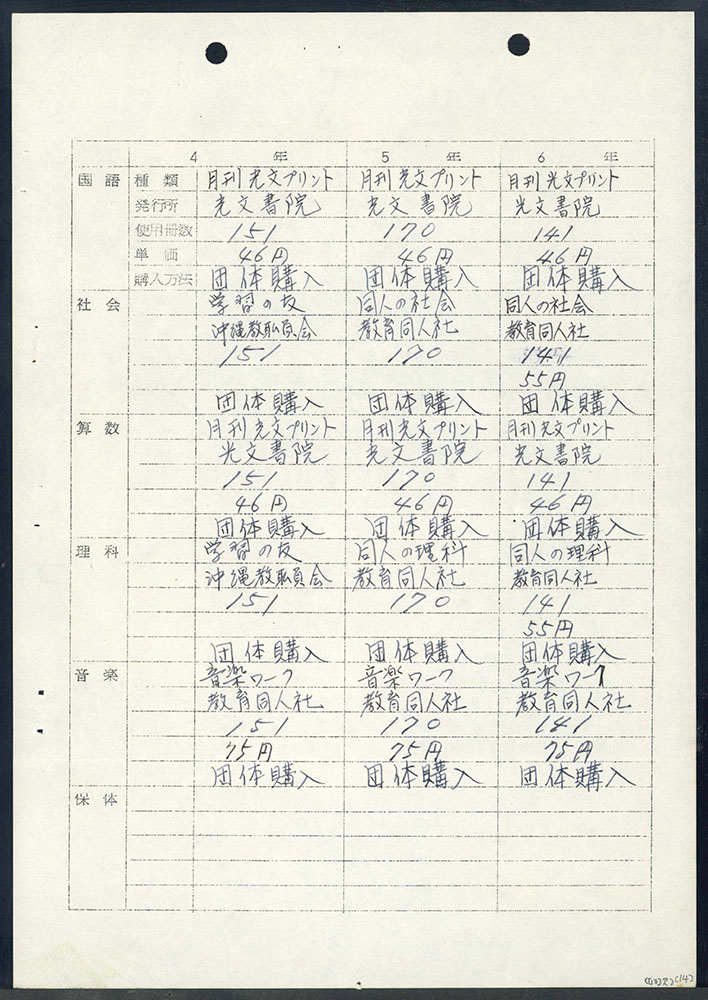 4 年 5 年 6 年
国語 種類 月刊光文プリント 月刊光文プリント 月刊光文プリント
発行所 光文書院 光文書院 光文書院
使用冊数 151 170 141
単価 46円 46円 46円
購入方法 団体購入 団体購入 団体購入
社会 学習の友 同人の社会 同人の社会
沖縄教職員会 教育同人社 教育同人社
151 170 141
55円
団体購入 団体購入 団体購入
算数 月刊光文プリント 月刊光文プリント 月刊光文プリント
光文書院 光文書院 光文書院
151 170 141
46円 46円 46円
団体購入 団体購入 団体購入
理科 学習の友 同人の理科 同人の理科
沖縄教職員会 教育同人社 教育同人社
151 170 141
55円
団体購入 団体購入 団体購入
音楽 音楽ワーク 音楽ワーク 音楽ワーク
教育同人社 教育同人社 教育同人社
151 170 141
75円 75円 75円
団体購入 団体購入 団体購入
保体
(14)